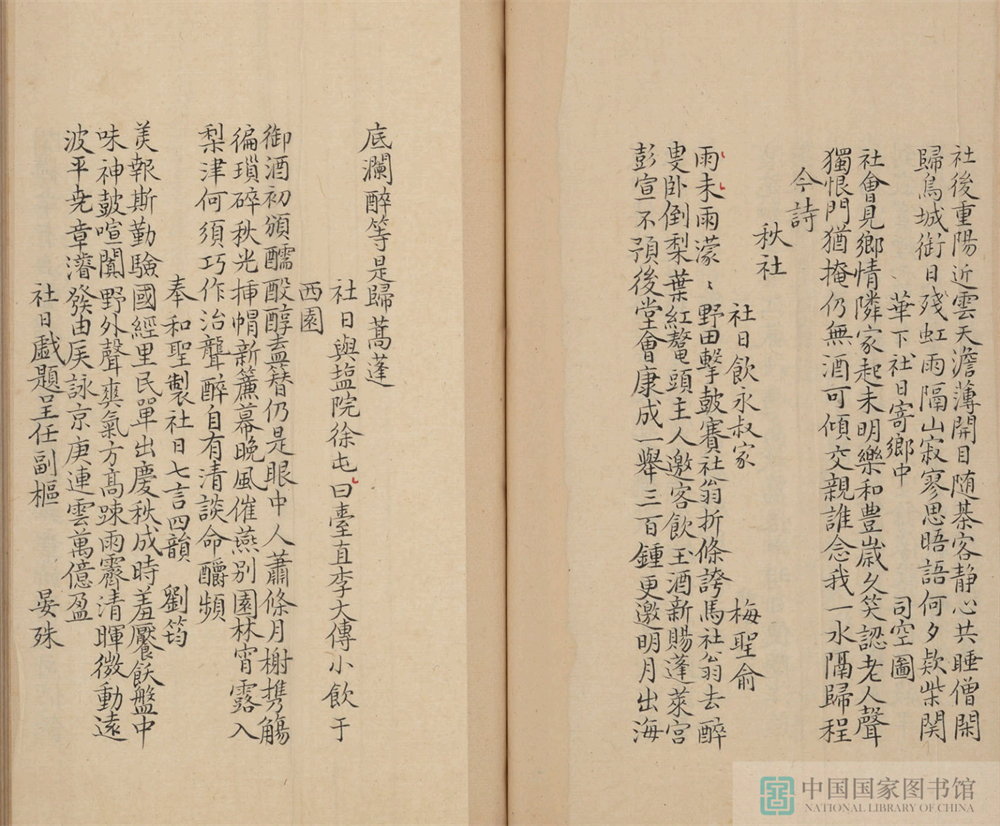 社後重陽近雲天澹薄開目随棊客静心共睡僧閑
歸鳥城銜日殘虹雨隔山寂寥思晤語何夕欵柴関
華下社日寄鄉中　司空圖
社會見鄉情隣家起未明樂和豊嵗久笑認老人聲
獨恨門猶掩仍無酒可傾交親誰念我一水隔歸程
今詩
秋社
社日飲永叔家　梅聖俞
雨未雨濛〻野田擊鼓賽社翁折條誇馬社翁去醉
叟卧倒梨葉紅鼇頭主人邀客飲王酒新賜蓬萊宮
彭宣不預後堂會康成一舉三百鍾更邀明月出海
底瀾醉等是歸蒿蓬
社日與塩院徐屯田臺直李大傅小飲于
西園
御酒初頒醹酘醇盍簪仍是眼中人蕭條月榭携觴
徧瑣碎秋光揷帽新簾幕晚風催燕別園林宵露入
梨津何須巧作治聾醉自有清談命釂頻
奉和聖製社日七言四韻　劉筠
羙報斯勤驗國經里民單出慶秋成時羞饜飫盤中
味神鼓喧闐野外聲爽氣方高踈雨霽清暉微動遠
波平尭章濬發由戻詠京庚連雲萬億盈
社日戲題呈任副樞　晏殊
中国国家图书馆
NATIONAL LIBRARY OF CHINA